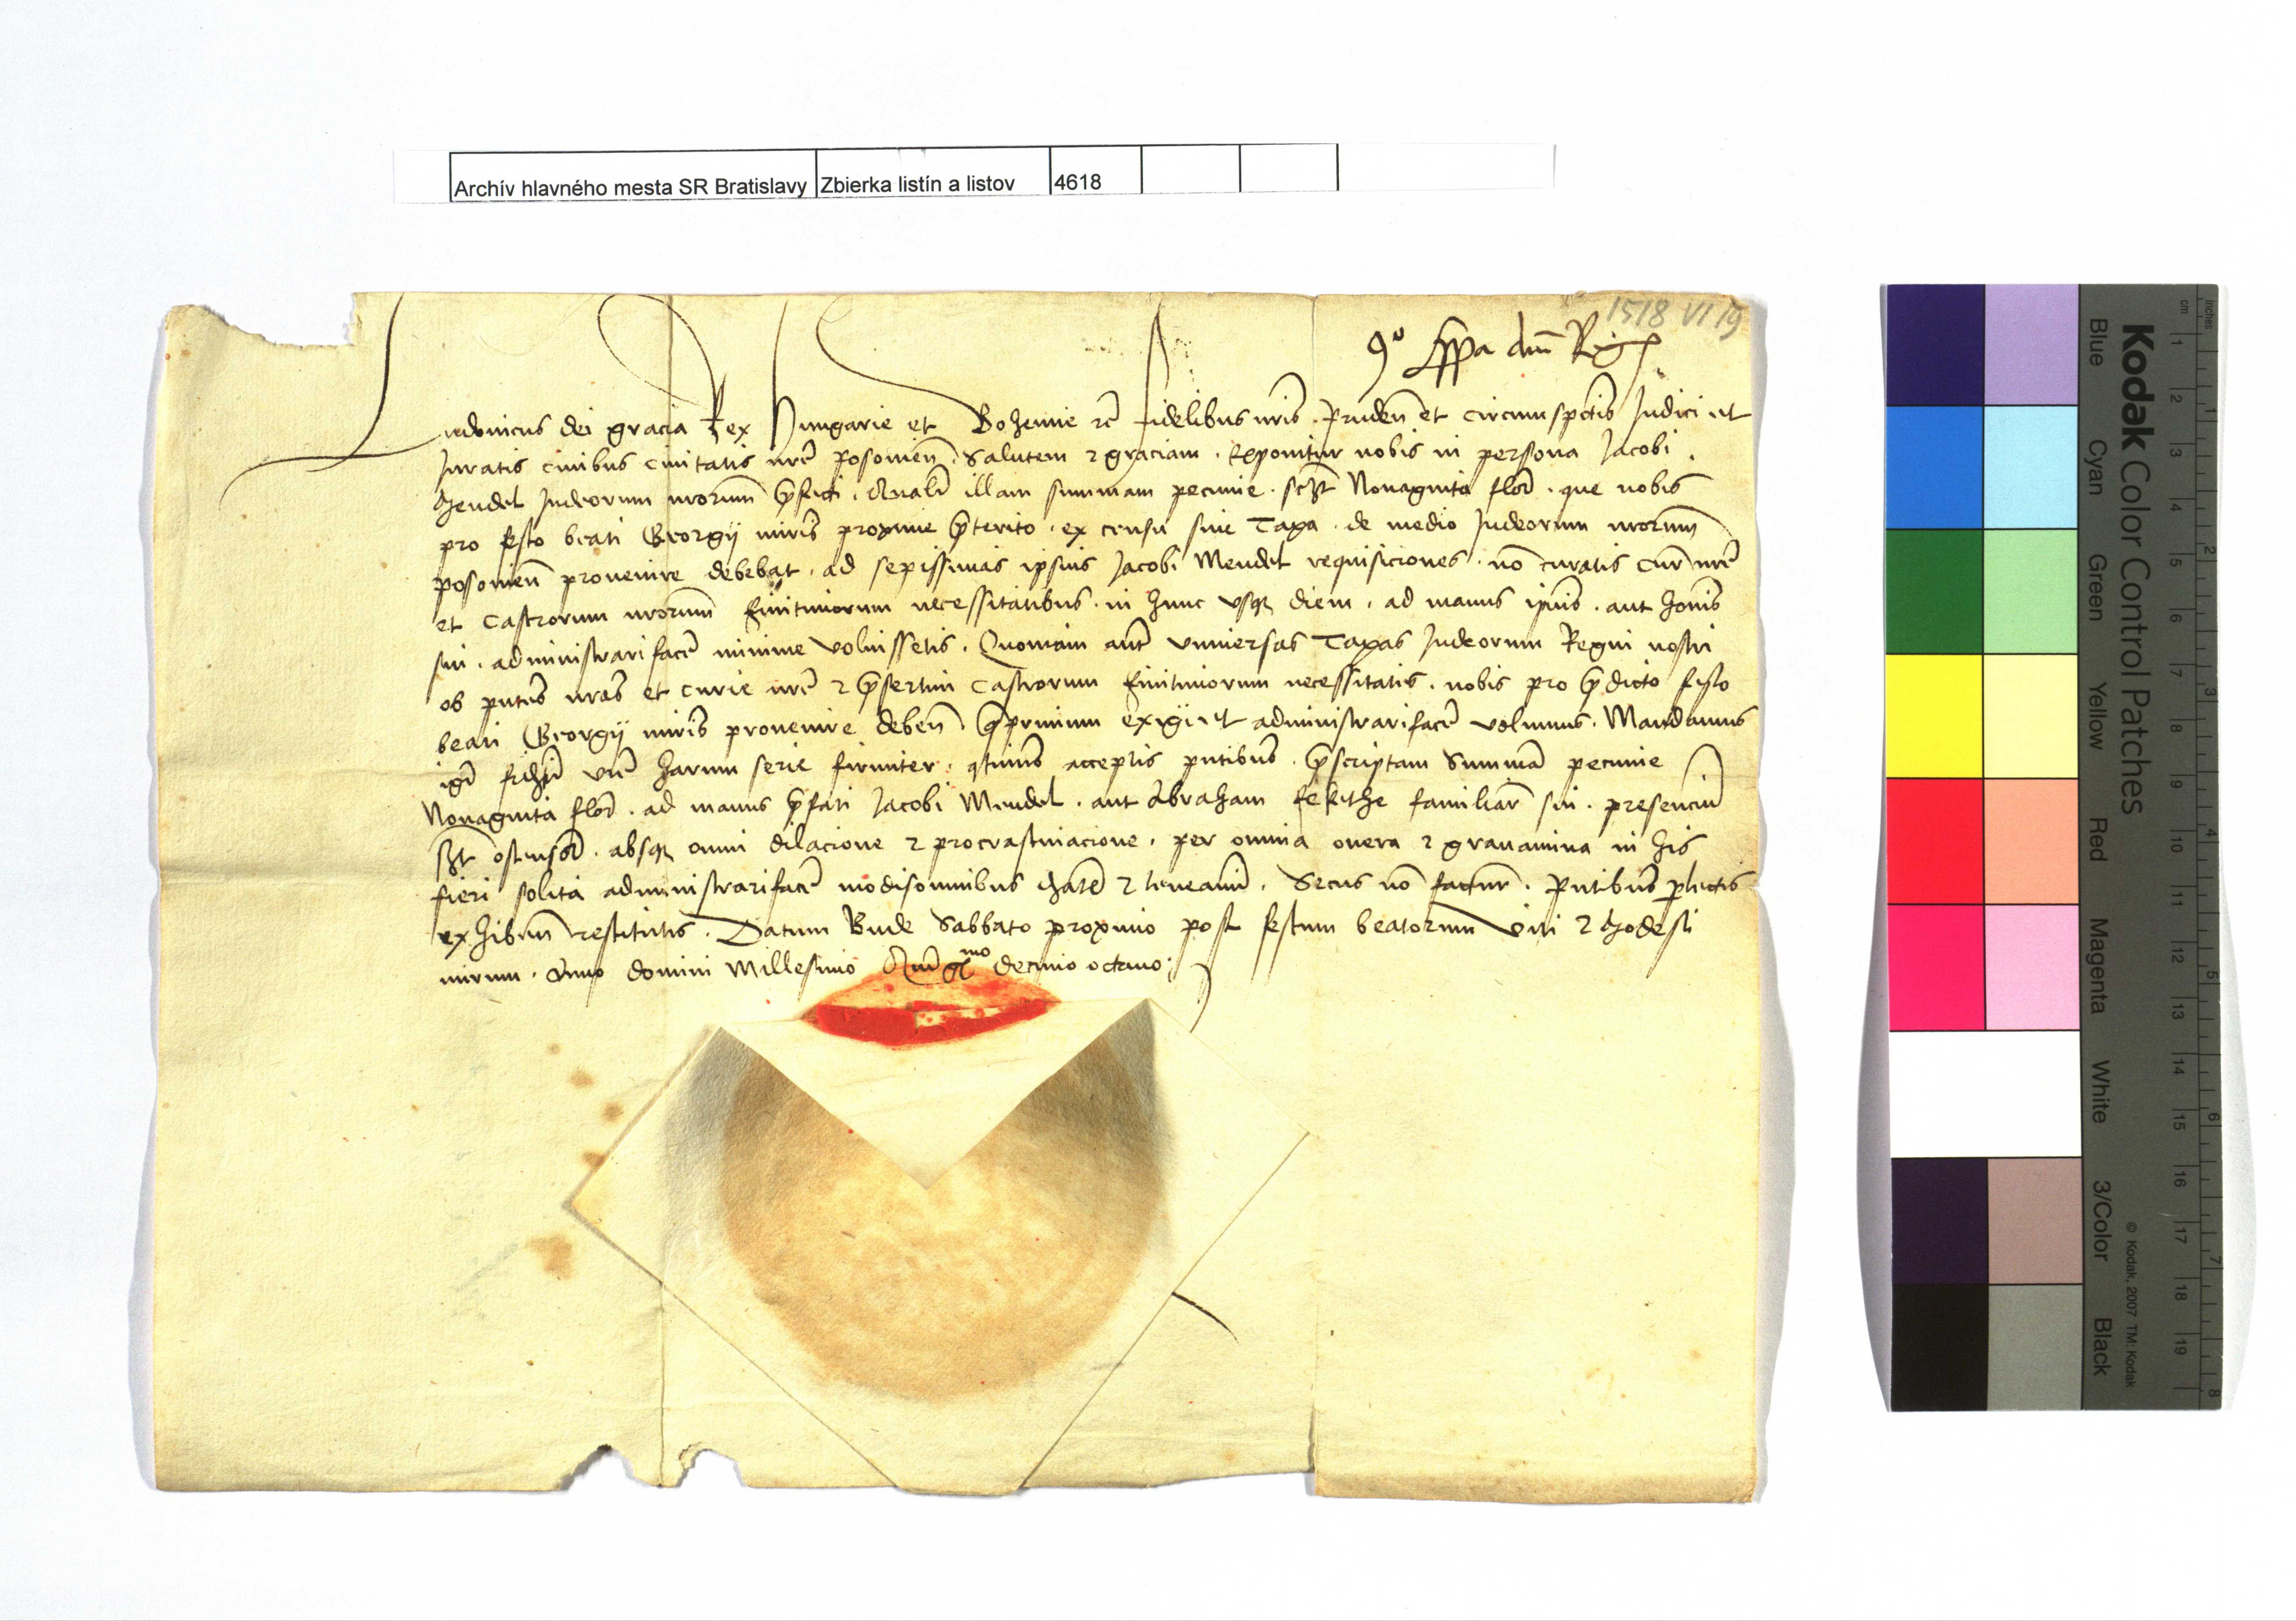 Archív hlavného mesta SR Bratislavy Zbierka listín a listov 4618
1518 VI 19
Co ppa dni Regis
Ludouicus dei gracia Rex Hungarie et Bohemie etc fidelibus nris Pruden et circumspectis Judici et
Juratis ciuibus ciuitatis nre posonien Salutem et graciam . Exponitur nobis in persona Jacobi
Mendel Judeorum nrorum prefecti . Qualr illam summam pecunie . sczt Nonaginta flor . que nobis
pro festo beati Georgij mris proxime preterito . ex censu siue Taxa . de medio Judeorum nrorum
posonien prouenire debebat . ad sepissimas ipsius Jacobi Mendel requisiciones . no curatis Cur nre
et Castrorum nrorum finitimorum necessitatibus . in hunc vsque diem . ad manus ipsius . aut hominis
sui . administrarifacere minime voluissetis . Quoniam aute vniuersas Taxas Judeorum Regni nostri
ob putes nras et curie nre et presertim Castrorum finitimorum necessitatis . nobis pro predicto festo
beati Georgij mris prouenire deben exigi et administrarifacere volumus . Mandamus
igr fidti vre harum serie firmiter . qtinus acceptis putibus . prescriptam Summa pecunie
Nonaginta flor . ad manus prefati Jacobi Mendel . aut Abraham fekethe familiar sui . presenciu
szt ostensor . absque omni dilacione et procrastinacione . per omnia onera et grauamina in his
fieri solita administrarifacere modisomnibus debeatis et teneamini . Secus no factur . Putibus perlectis
exhibenti restitutis . Datum Bude Sabbato proximo post festum beatorum Viti et Modesti
mrum . Anno domini Millesimo Quingmo decimo octauo
Kodak Color Control Patches
Blue Cyan Green Yellow Red Magenta White 3/Color Black
© Kodak, 2007 TM: Kodak
inches 1 2 3 4 5 6 7 8
cm 1 2 3 4 5 6 7 8 9 10 11 12 13 14 15 16 17 18 19